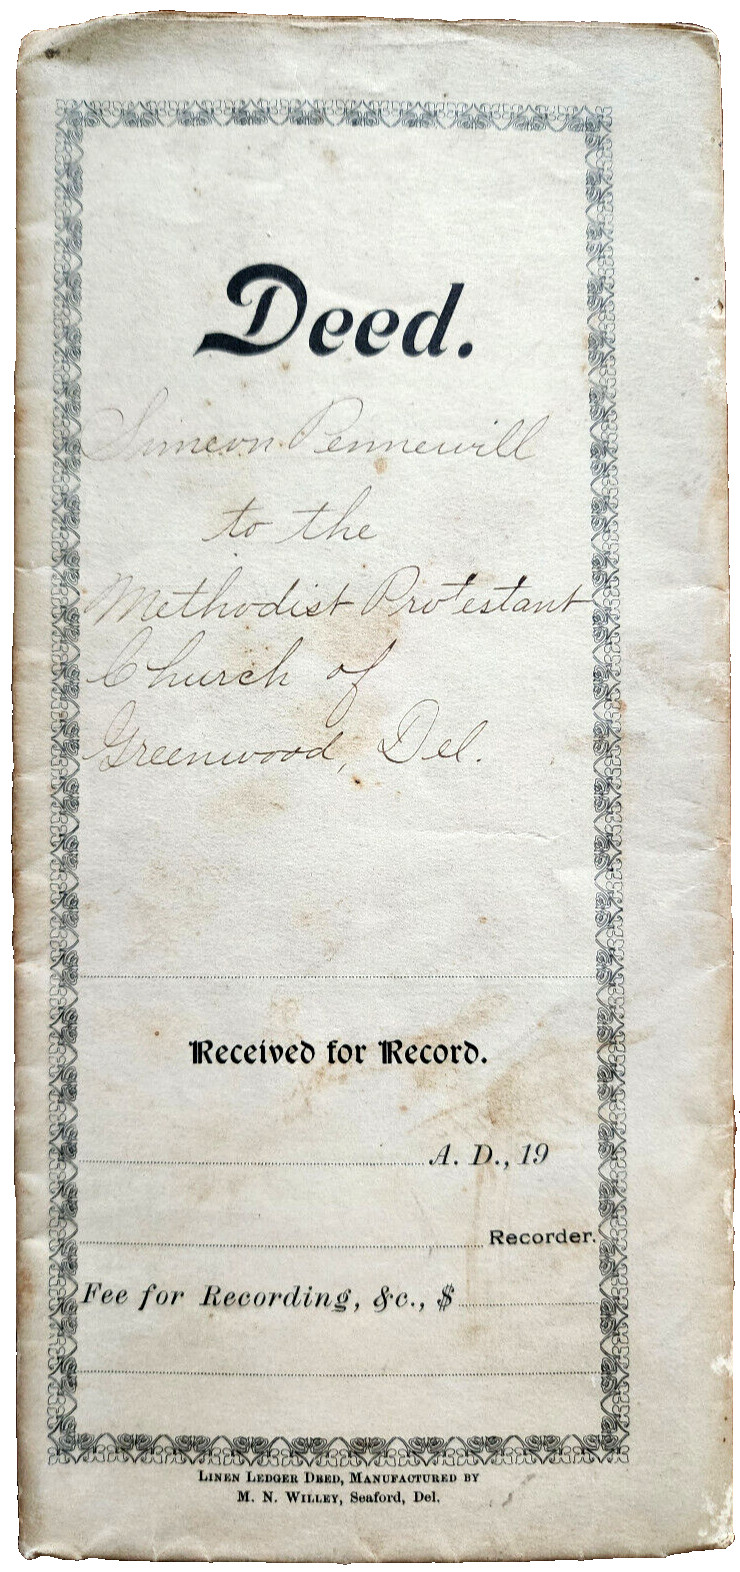 Deed.
Simeon Pennewill
to the
Methodist Protestant
Church of
Greenwood, Del.
Received for Record.
A. D., 19
Recorder.
Fee for Recording, &c., $
LINEN LEDGER DEED, MANUFACTURED BY
M. N. WILLEY, Seaford, Del.